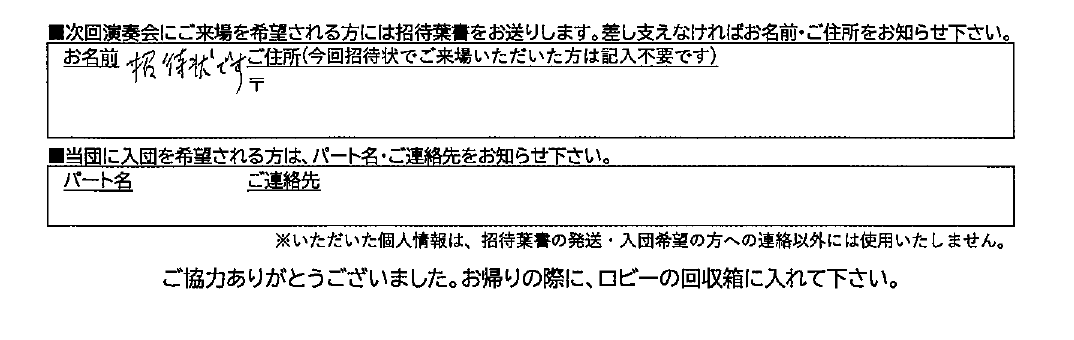 ■次回演奏会にご来場を希望される方には招待葉書をお送りします。差し支えなければお名前・ご住所をお知らせ下さい。
お名前 招待状です ご住所(今回招待状でご来場いただいた方は記入不要です)
〒
■当団に入団を希望される方は、パート名・ご連絡先をお知らせ下さい。
パート名 ご連絡先
※いただいた個人情報は、招待葉書の発送・入団希望の方への連絡以外には使用いたしません。
ご協力ありがとうございました。お帰りの際に、ロビーの回収箱に入れて下さい。